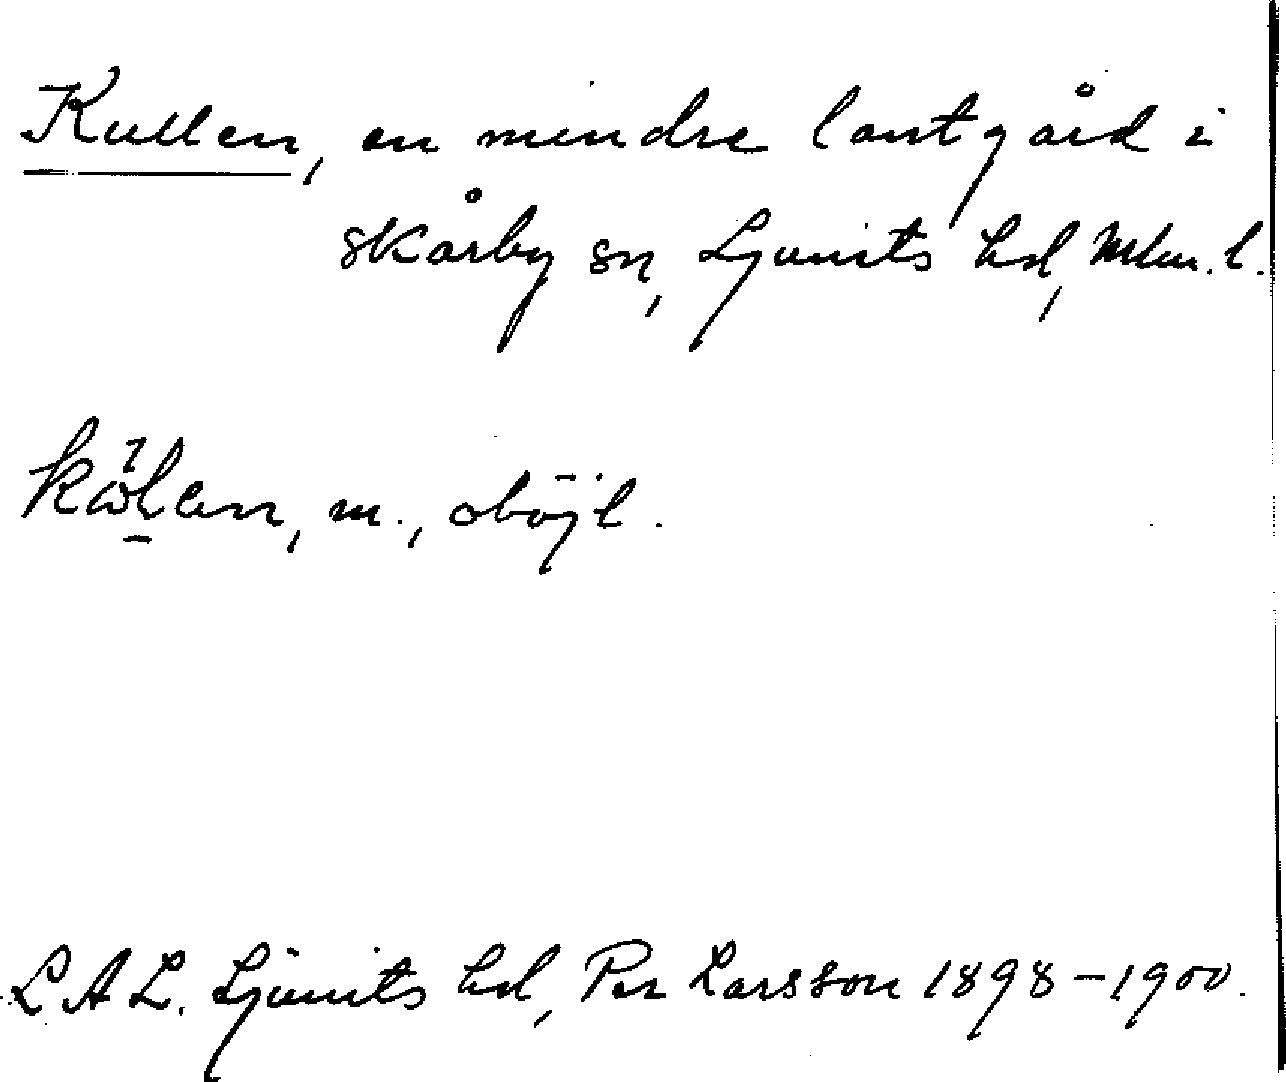 Kullen, en mindre lantgård i
Skårby sn, Ljunits hd, Mlm. l.
kölen, m., oböjl.
L A L. Ljunits hd, Per Larsson 1898-1900.